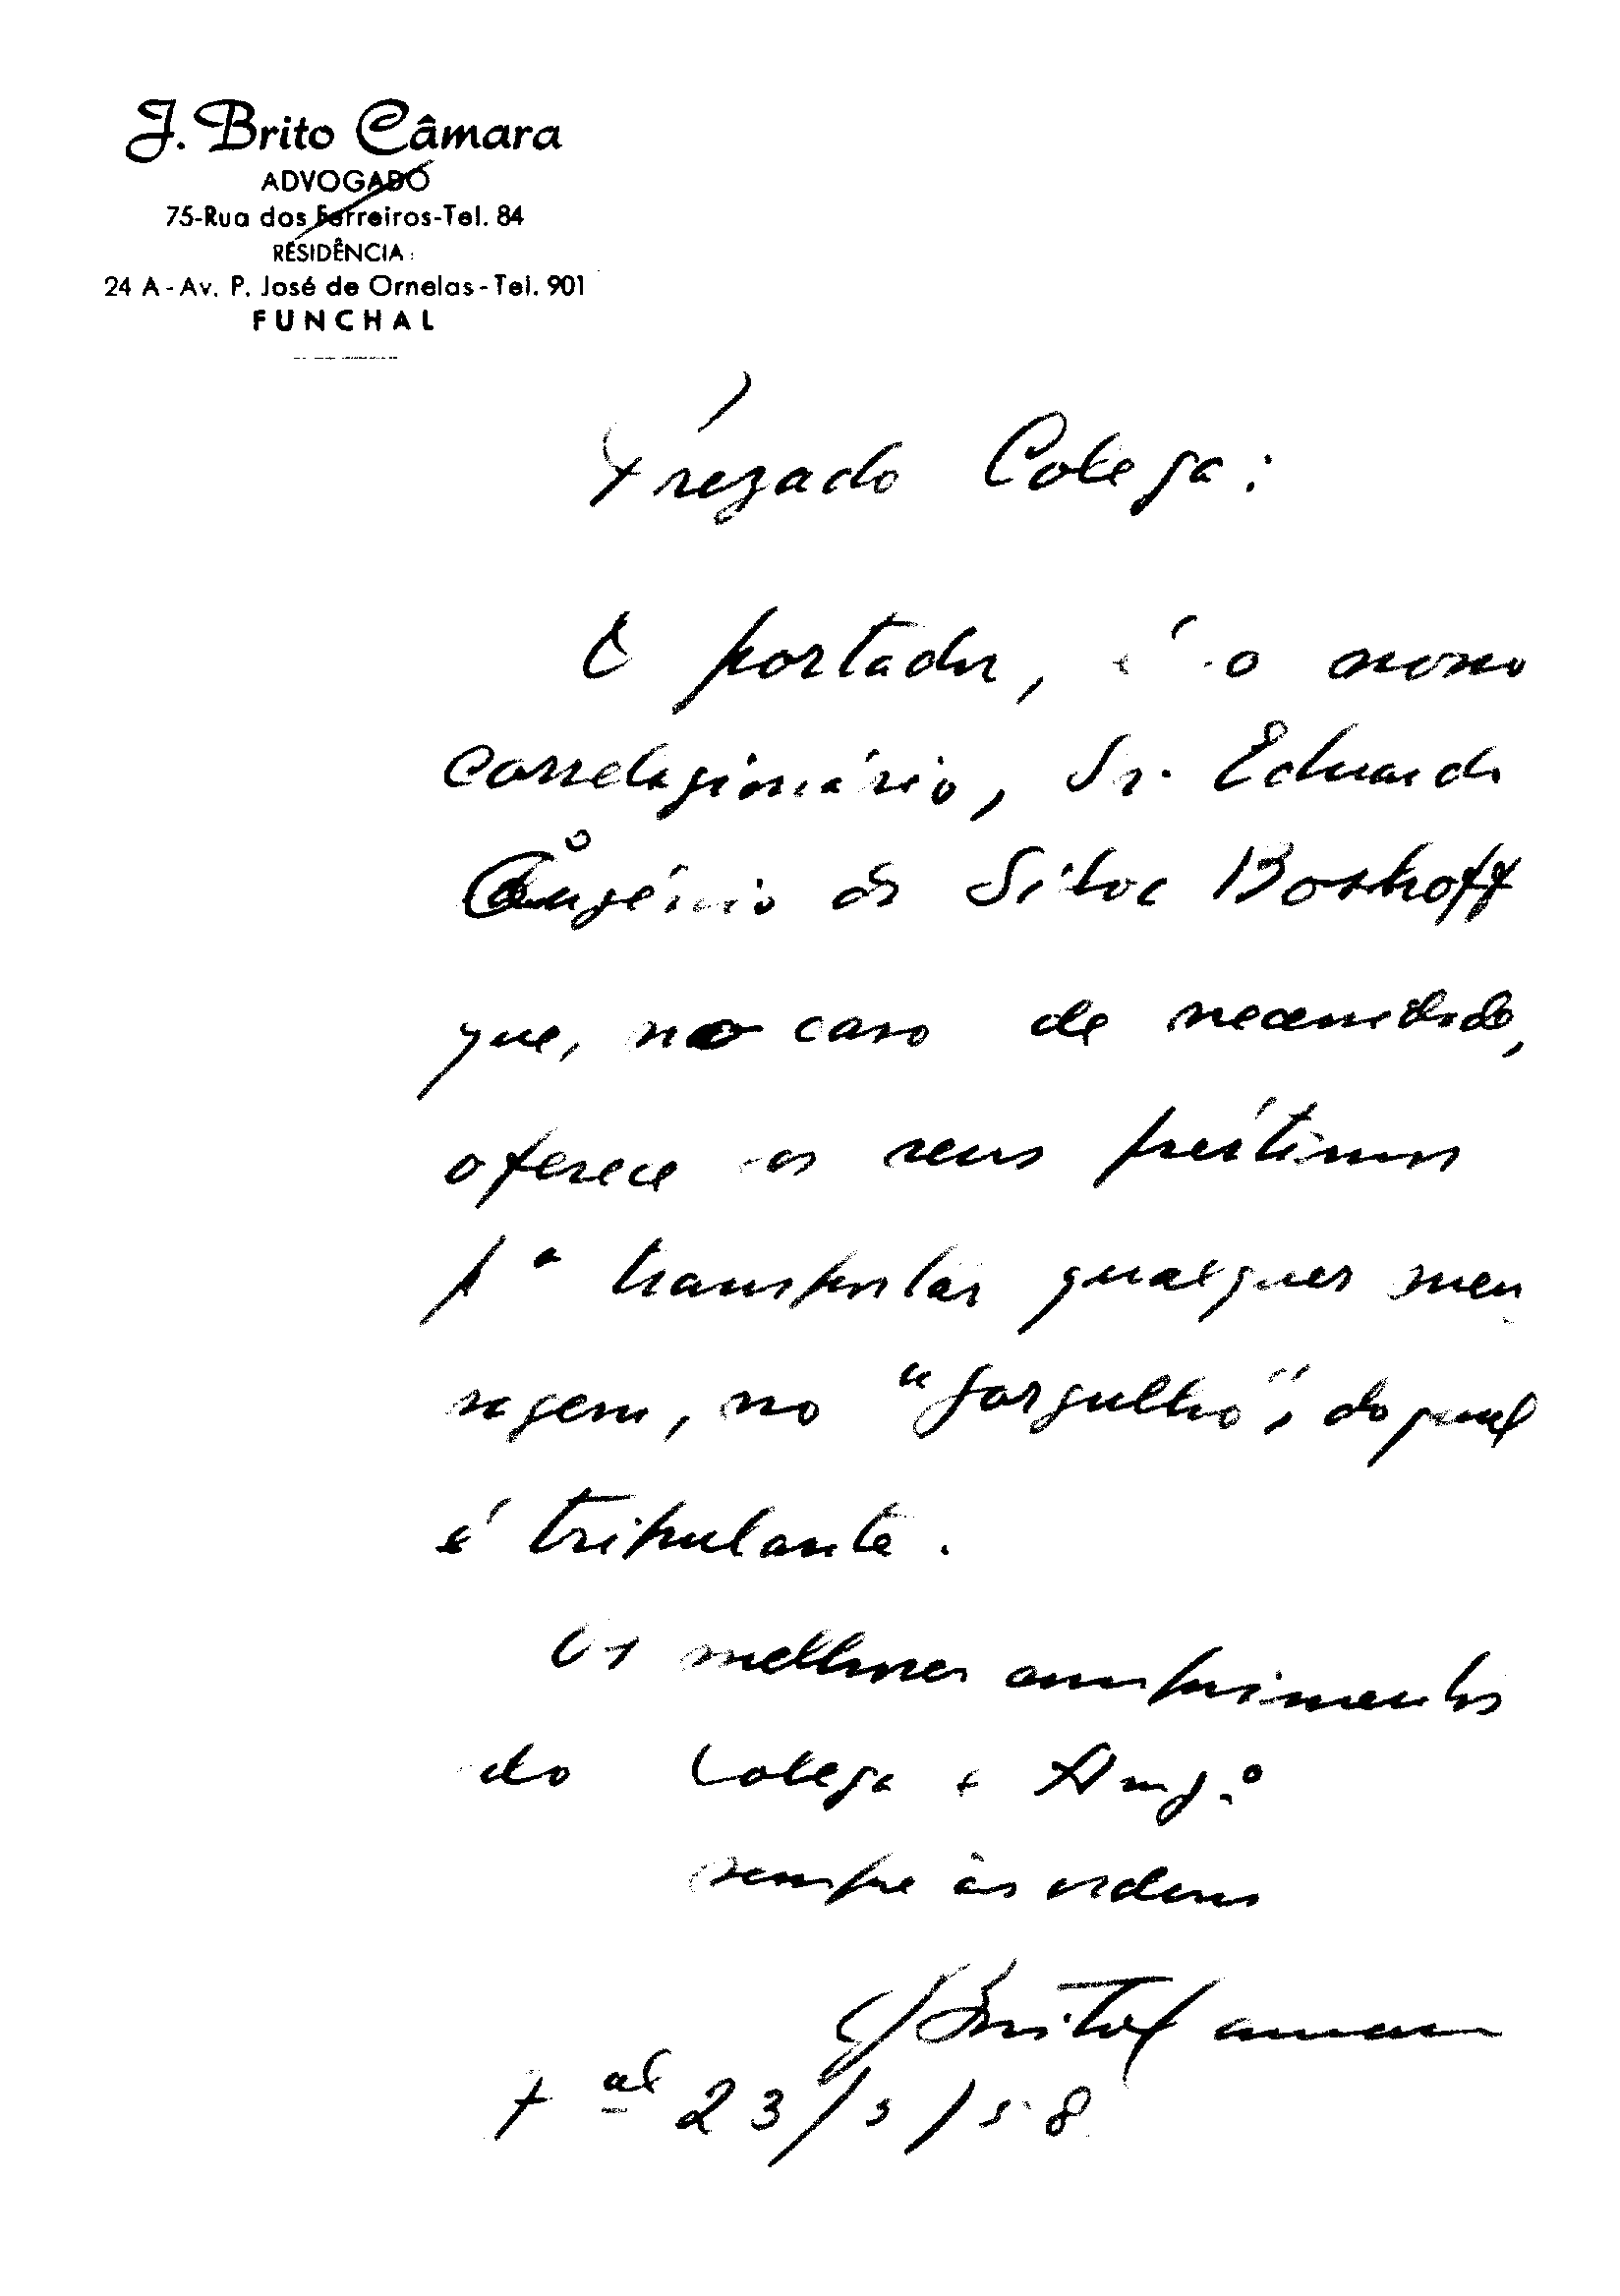 J. Brito Câmara
ADVOGADO
75-Rua dos Ferreiros-Tel. 84
RESIDÊNCIA:
24 A-Av. P. José de Ornelas-Tel. 901
FUNCHAL
Prezado Colega:
O portador, é o nosso
correlegionário, Sr. Eduardo
Eugénio da Silva Boshoff
que, no caso de necessidade,
oferece os seus préstimos
pª transportar qualquer men
sagem, no "Gorgulho", do qual
é tripulante.
Os melhores cumprimentos
do Colega e Amgº
sempre às ordens
J Brito Camara
F al 23/5/58